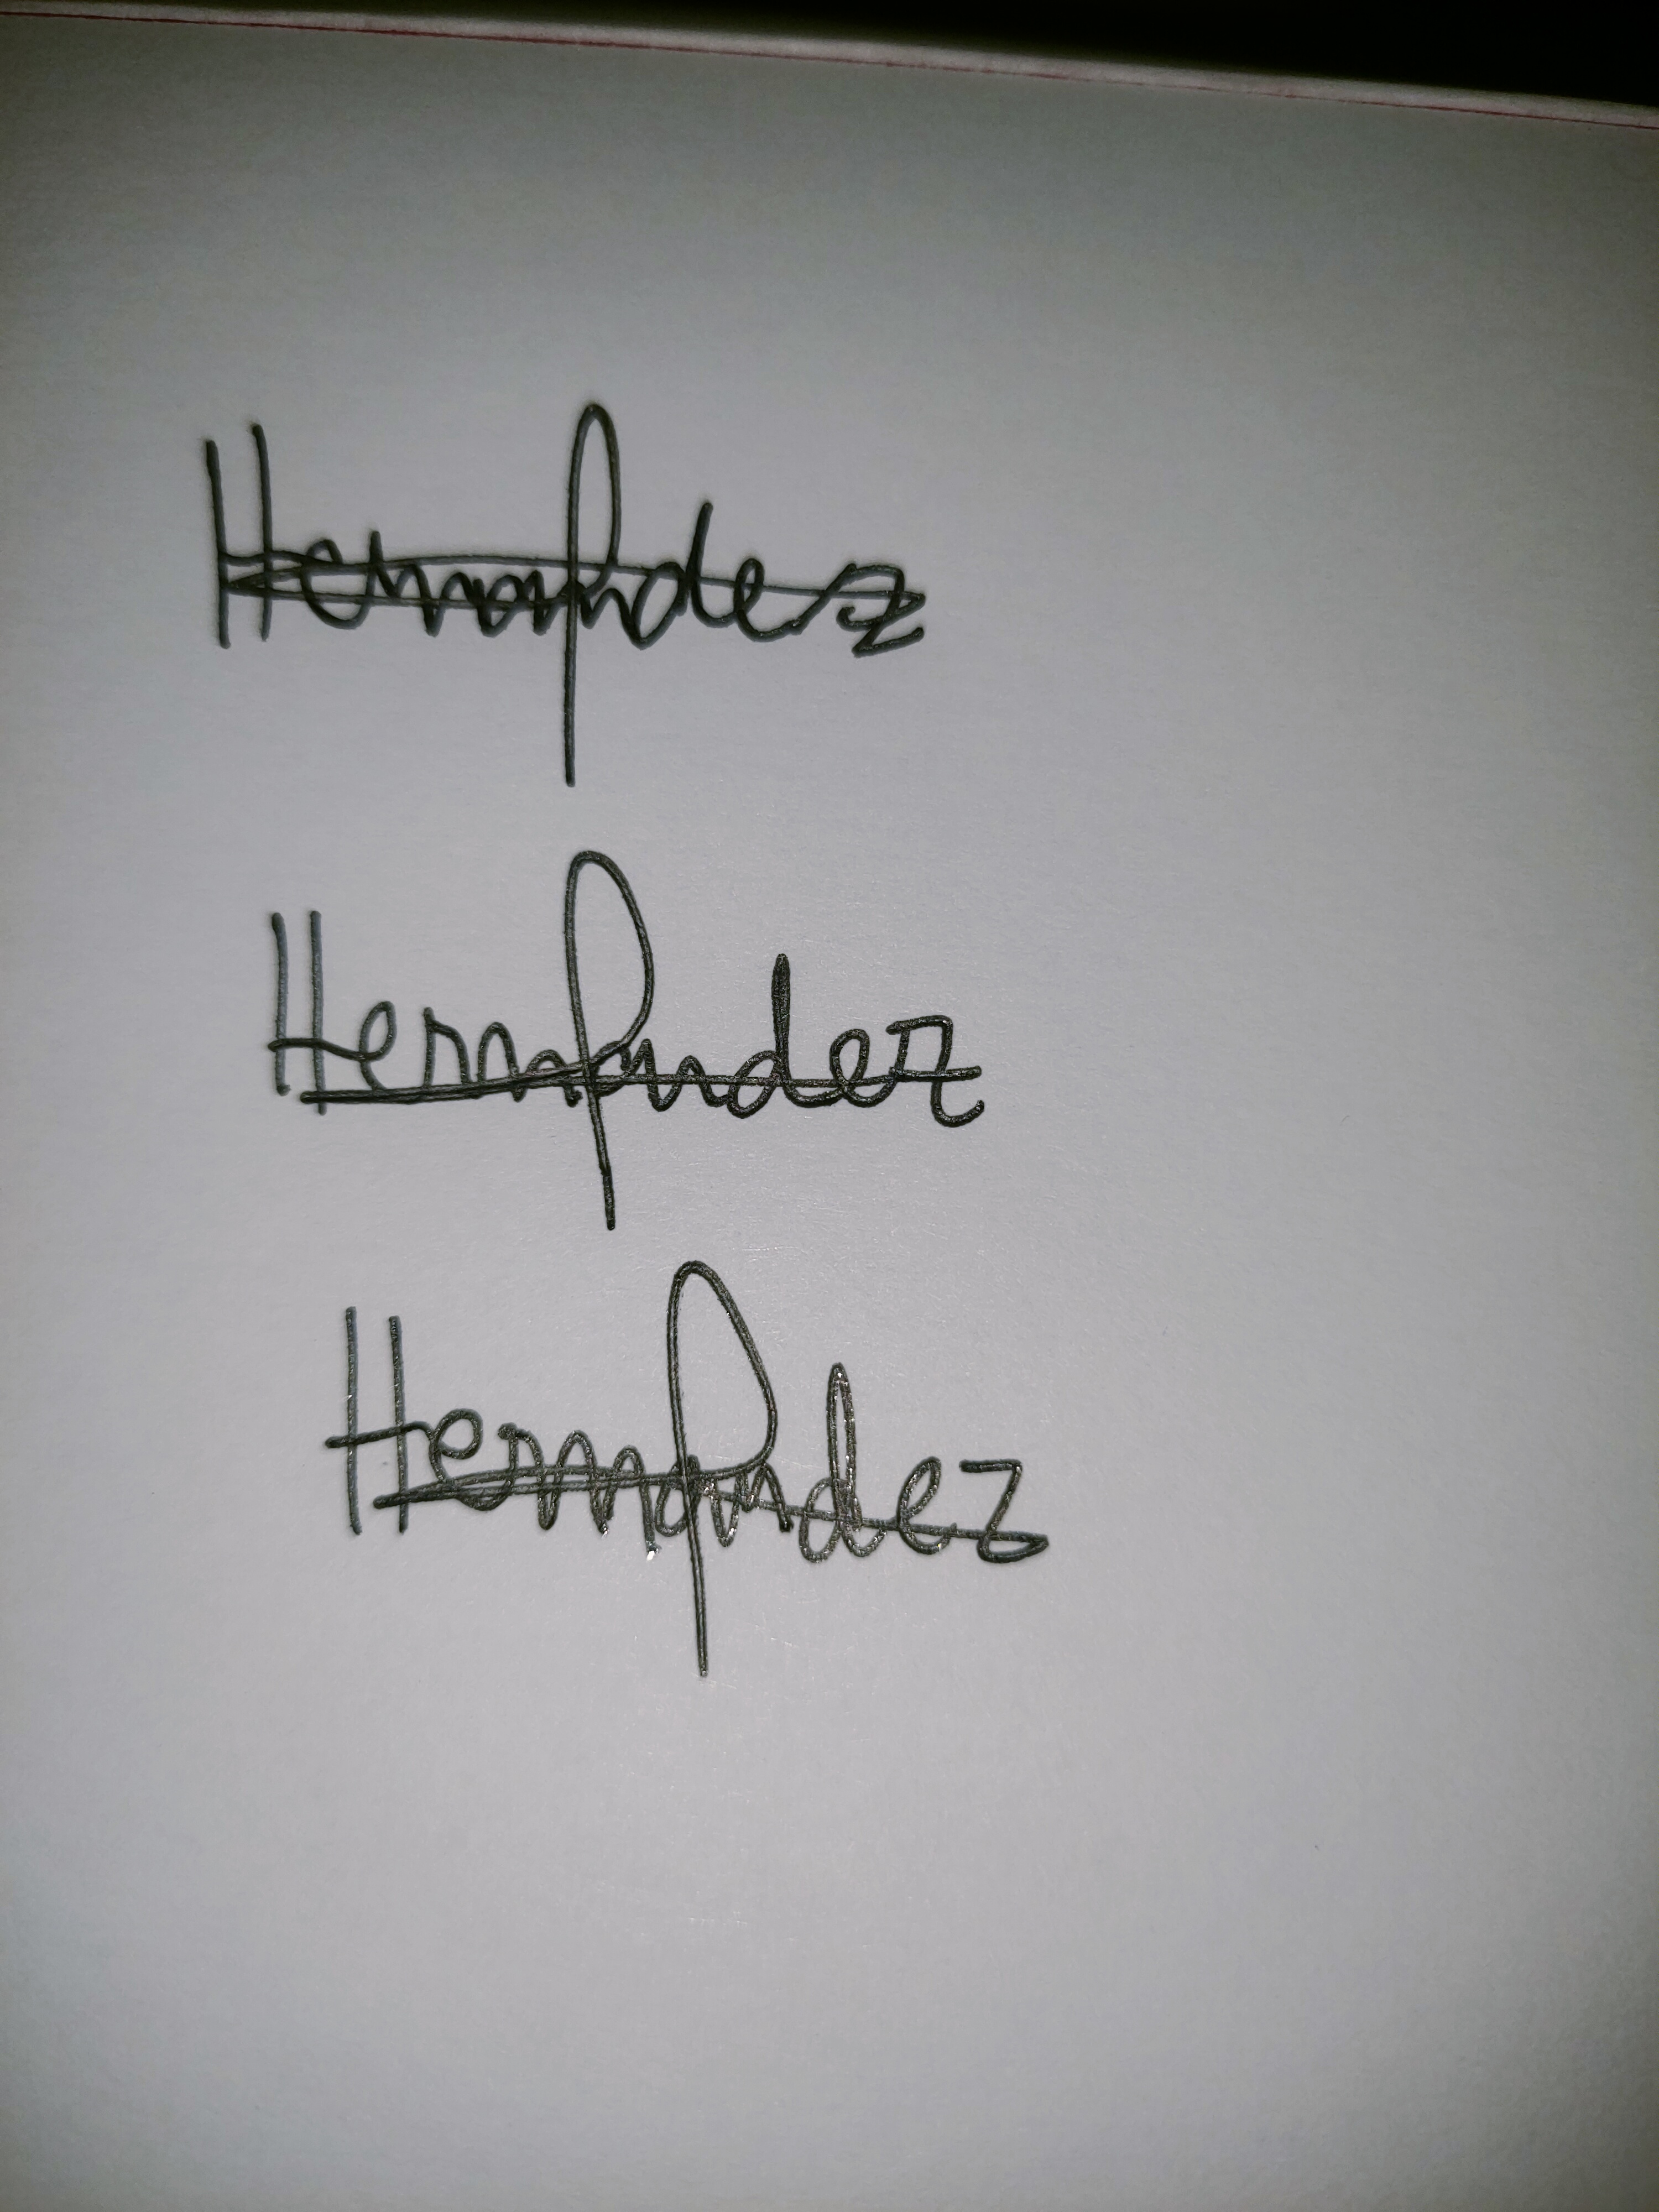 Hernandez
Hernandez
Hernandez